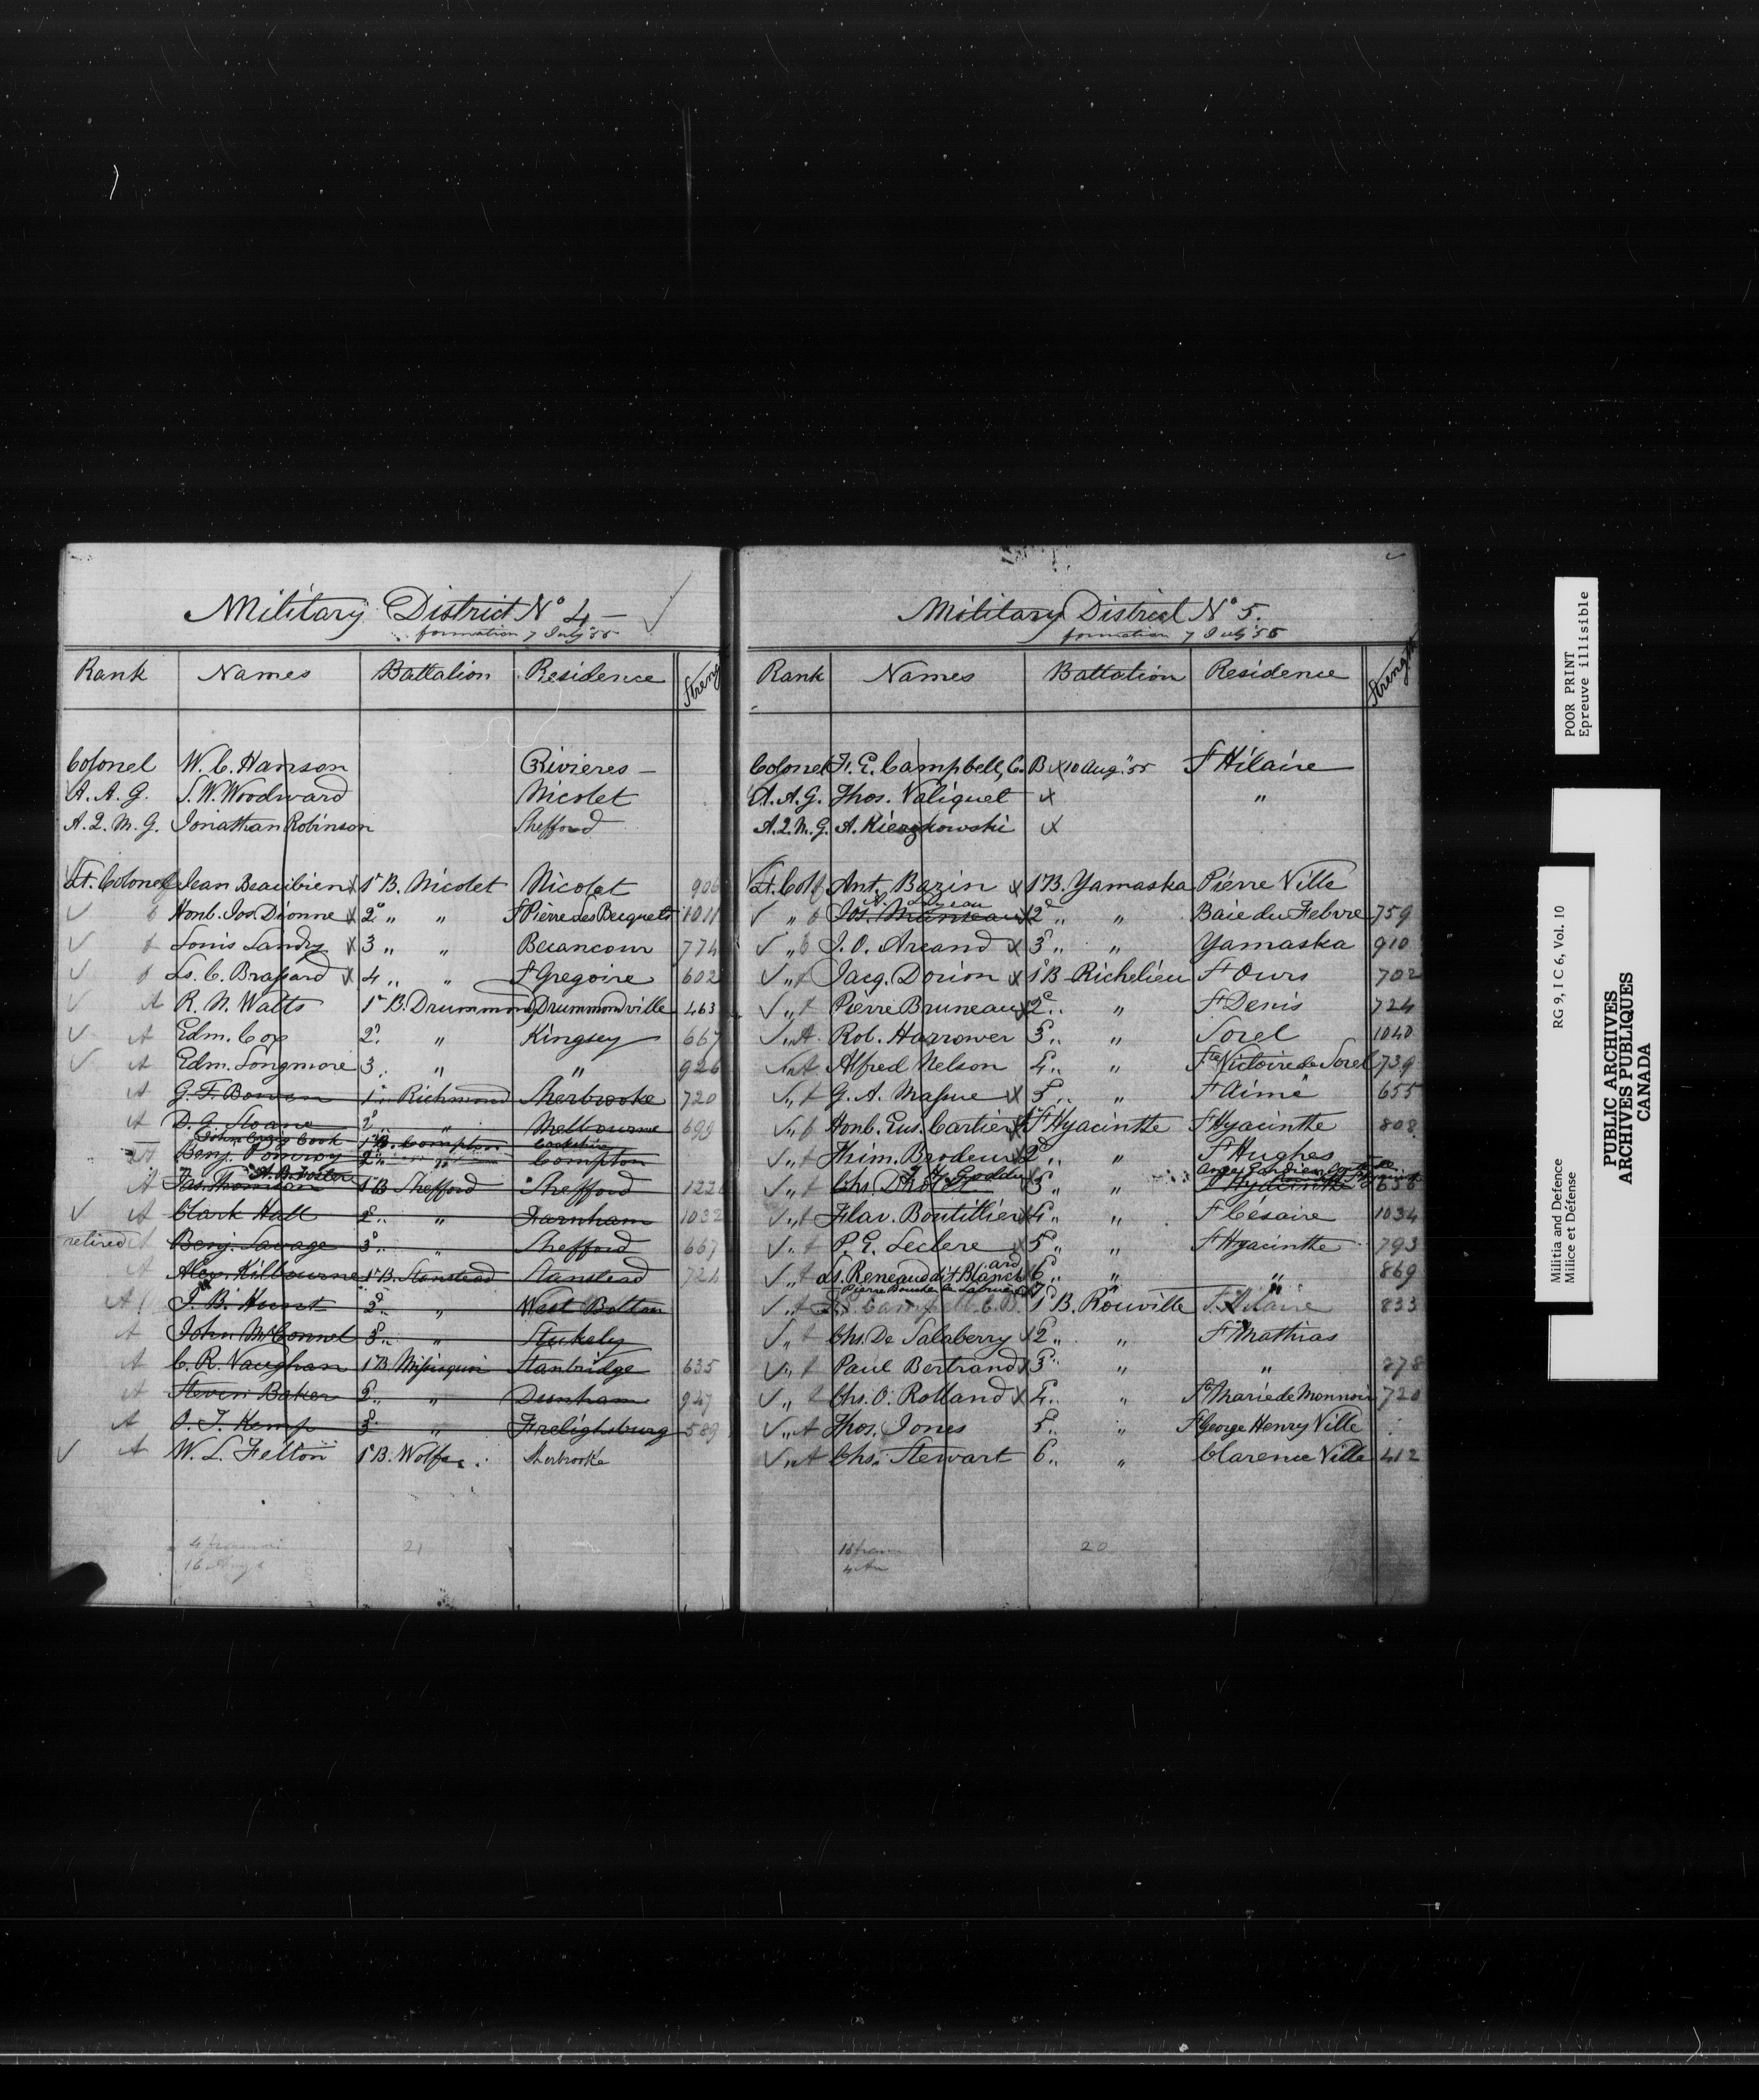 Military District No 4 -
formation 7 July 55
Rank Names Battalion Residence Streng
Colonel W. C. Hanson 3 Rivieres -
A. A. G. S. W. Woodward Nicolet
A. Q. M. G. Jonathan Robinson Shefford
Lt. Colonel Jean Beaubien x 1r B. Nicolet Nicolet 906
Honb. Jos. Dionne x 2d „ „ St Pierre Les Becquets 1011
Louis Landry x 3 „ „ Becancour 774
Ls. C. Brassard x 4 „ „ St Gregoire 602
A R. N. Watts 1r B. Drummond Drummondville 463
A Edm. Cox 2d „ Kingsey 667
A Edm. Longmore 3 „ „ 926
A G. F. Bowen 1r „ Richmond Sherbrooke 720
A D. G. Sloane 2d „ Melbourne 699
John Craig Cook 1r B. Compton Cookshire
Benj. Pomroy 2d „ Compton
A. B. Foster
A Jas. Thomson 1r B Shefford Shefford 122
A Clark Hall 2d „ „ Farnham 1032
retired Benj. Savage 3d „ „ Shefford 667
A Alex. Kilbourne 1r B. Stanstead Stanstead 724
A J. B. Hunt 2d „ „ West Bolton
A John McConnel 3d „ „ Stukely
A C. R. Vaughan 1r B Missisquoi Stanbridge 635
A Steven Baker 2d „ „ Dunham 947
A O. J. Kemp 3d „ Frelighsburg 589
A W. L. Felton 1r B. Wolfe Sherbrooke
4 21
16
Military District No 5.
formation 7 July 55
Rank Names Battalion Residence Strength
Colonel F. E. Campbell, C. B x 10 Aug. 55 St Hilaire
A. A. G. Thos. Valiquet x „
A. Q. M. G. A. Kierzkowski x
Lt. Col. f Ant. Bazin x 1r B. Yamaska Pierre Ville
„ Jos. Manseau x 2d „ „ Baie du Febvre 759
„ J. O. Arcand x 3d „ „ Yamaska 910
„ f Jacq. Dorion x 1r B Richelieu St Ours 702
„ f Pierre Bruneau x 2d „ „ St Denis 724
„ A Rob. Harrower 3d „ „ Sorel 1040
„ A Alfred Nelson 4 „ „ Ste Victoire de Sorel 739
„ f G. A. Massue x 5 „ „ St Aimé 655
„ f Honb. Eus. Cartier x 1r St Hyacinthe St Hyacinthe 808
„ f Thim. Brodeur x 2d „ „ St Hughes
„ f Chs. Drolet 3 „ „ St Hyacinthe 656
„ f Flav. Boutillier x 4 „ „ St Césaire 1034
„ f P. E. Leclere x 5 „ „ St Hyacinthe 793
„ f Ls. Reneaud dit Blanchard 6 „ „ „ 869
Pierre Boucher de Labruère
„ Campbell C. B. 1r B. Rouville St Hilaire 833
„ f Chs. De Salaberry x 2 „ „ St Mathias
„ f Paul Bertrand x 3 „ „ „ 878
„ f Chs. O. Rolland x 4 „ „ Ste Marie de Monnoir 720
„ A Thos. Jones 5 „ „ St George Henry Ville
„ A Chs. Stewart 6 „ „ Clarence Ville 412
16 20
4
POOR PRINT
Epreuve illisible
RG 9, I C 6, Vol. 10
Militia and Defence
Milice et Défense
PUBLIC ARCHIVES
ARCHIVES PUBLIQUES
CANADA